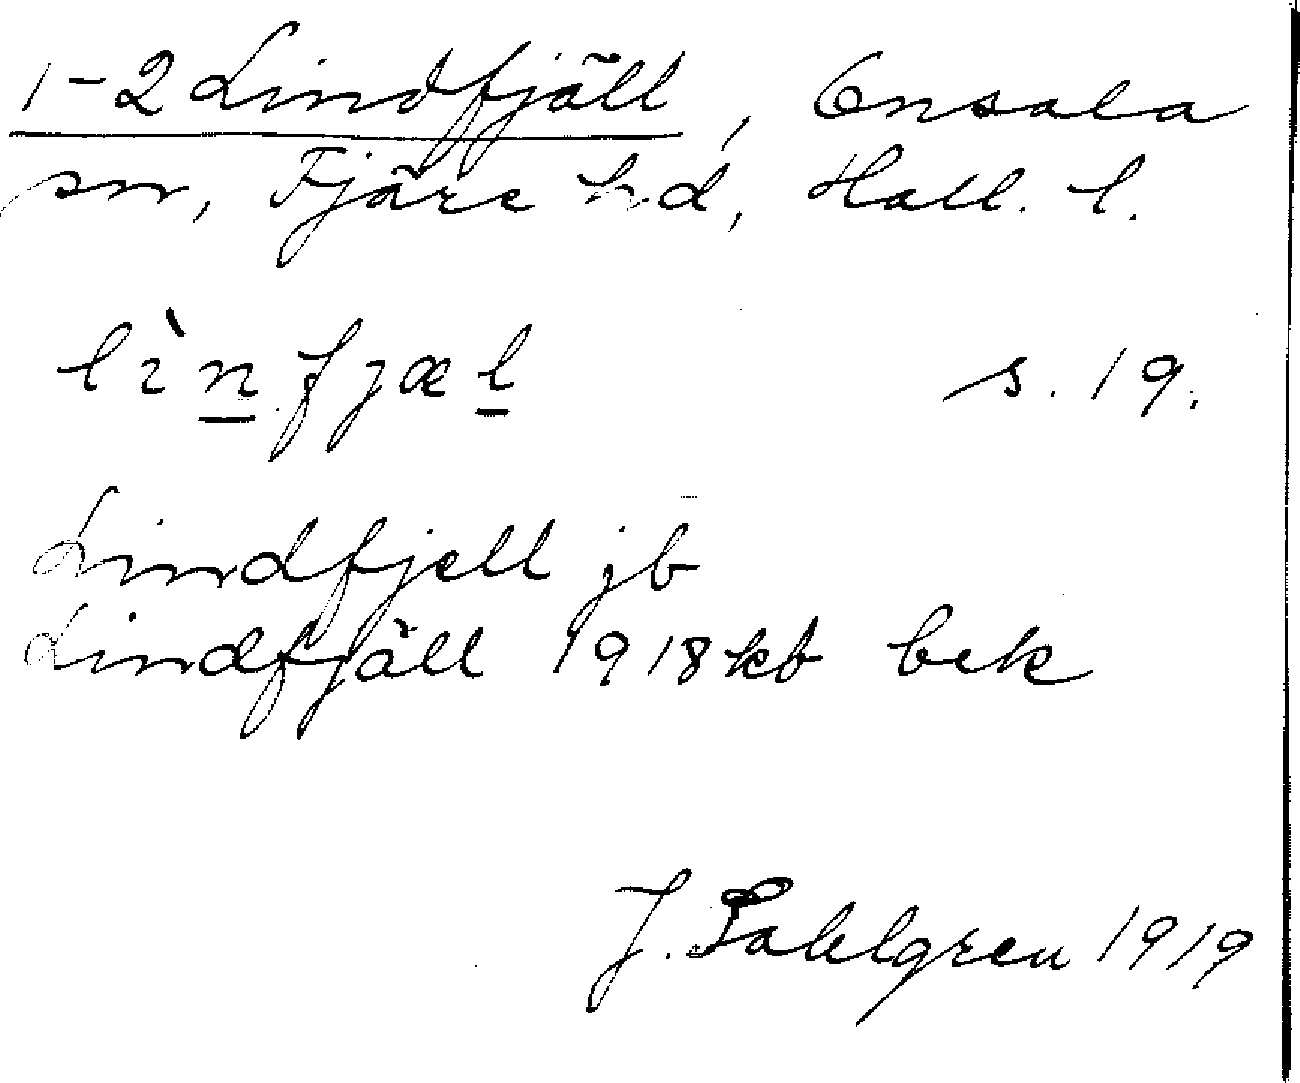 1-2 Lindfjäll, Onsala
sn, Fjäre hd, Hall. l.
lìnfjæl s. 19.
Lindfjell jb
Lindfjäll 1918 kb bek
J. Sahlgren 1919